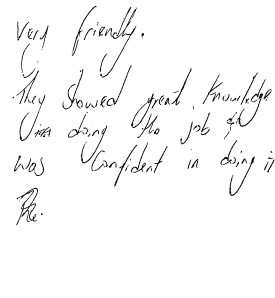 very friendly.
They showed great knowledge
doing the job &
was confident in doing it